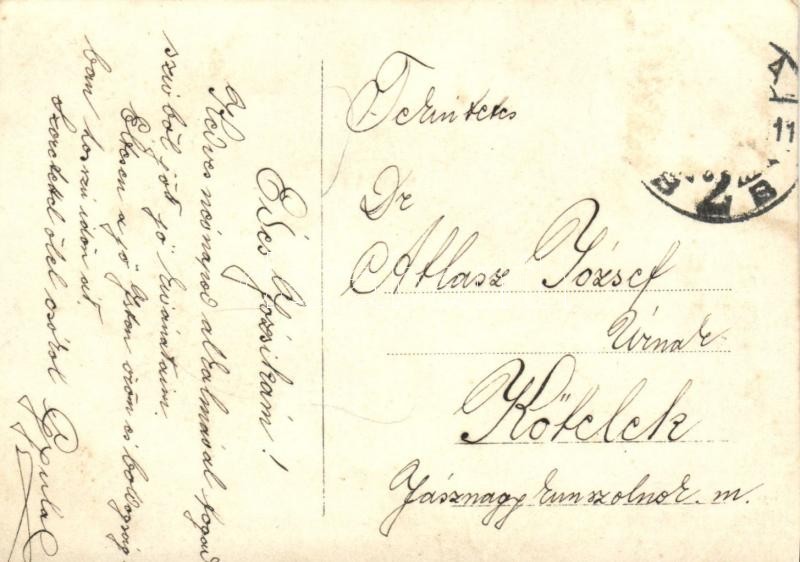 Édes Józsikám!
Kedves nevenapod alkalmával fogad
szivből jött jó kivánataim.
Éltesen a jó Isten öröm és boldogság
ban hosszu időn át.
Szeretettel ölel csókol Gyula
Tekintetes
Dr
Atlasz József
Úrnak
Kőtelek
Jásznagykunszolnok. m.
11
7